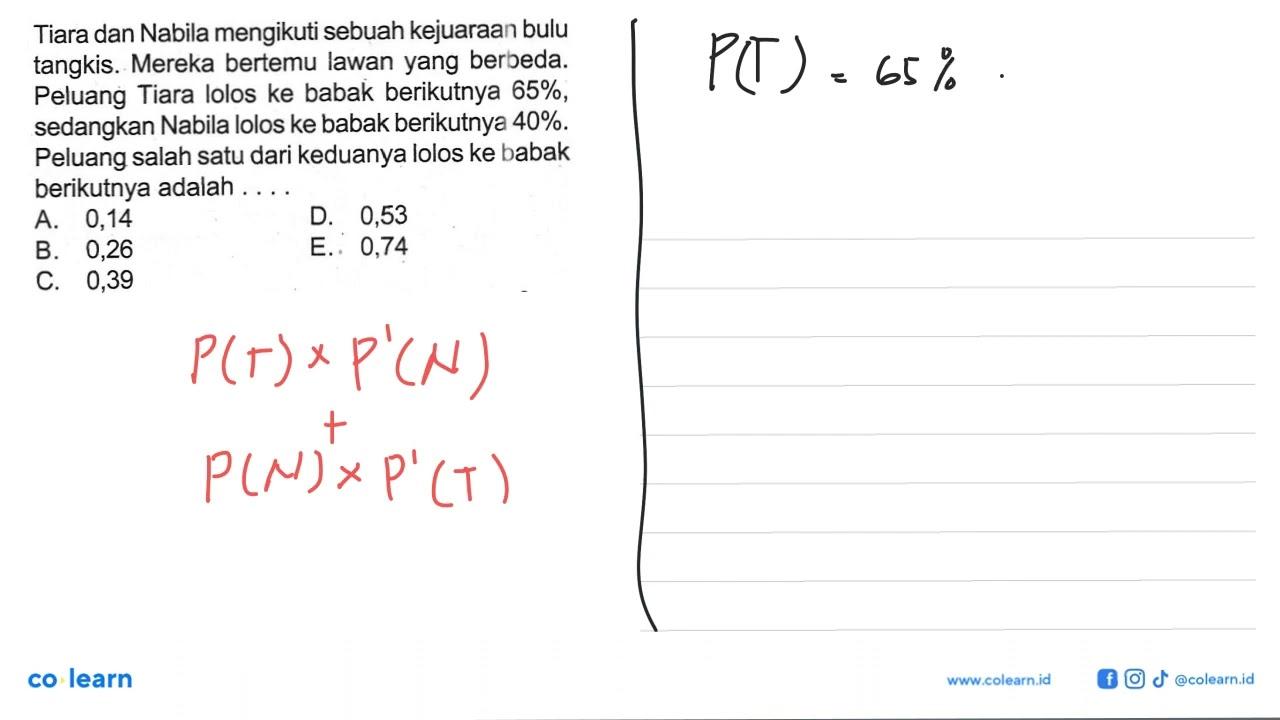 Tiara dan Nabila mengikuti sebuah kejuaraan bulu
tangkis. Mereka bertemu lawan yang berbeda.
Peluang Tiara lolos ke babak berikutnya 65%,
sedangkan Nabila lolos ke babak berikutnya 40%.
Peluang salah satu dari keduanya lolos ke babak
berikutnya adalah . . . .
A. 0,14
B. 0,26
C. 0,39
D. 0,53
E. 0,74
P(T) × P'(N)
+
P(N) × P'(T)
P(T) = 65% .
co learn
www.colearn.id
@colearn.id